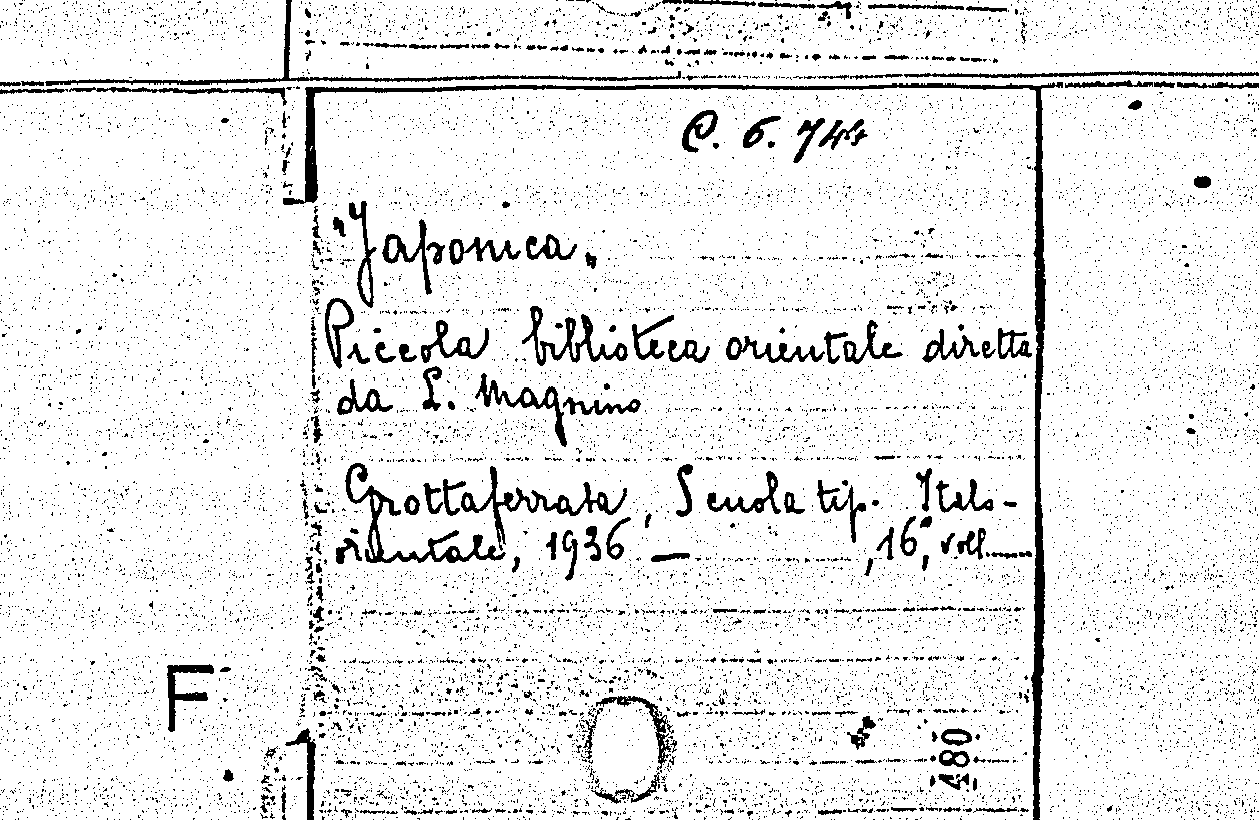 C. 6. 744
"Japonica„
Piccola biblioteca orientale diretta
da L. Magnino
Grottaferrata, Scuola tip. Italo-
orientale, 1936 — , 16°, voll.....
F
480